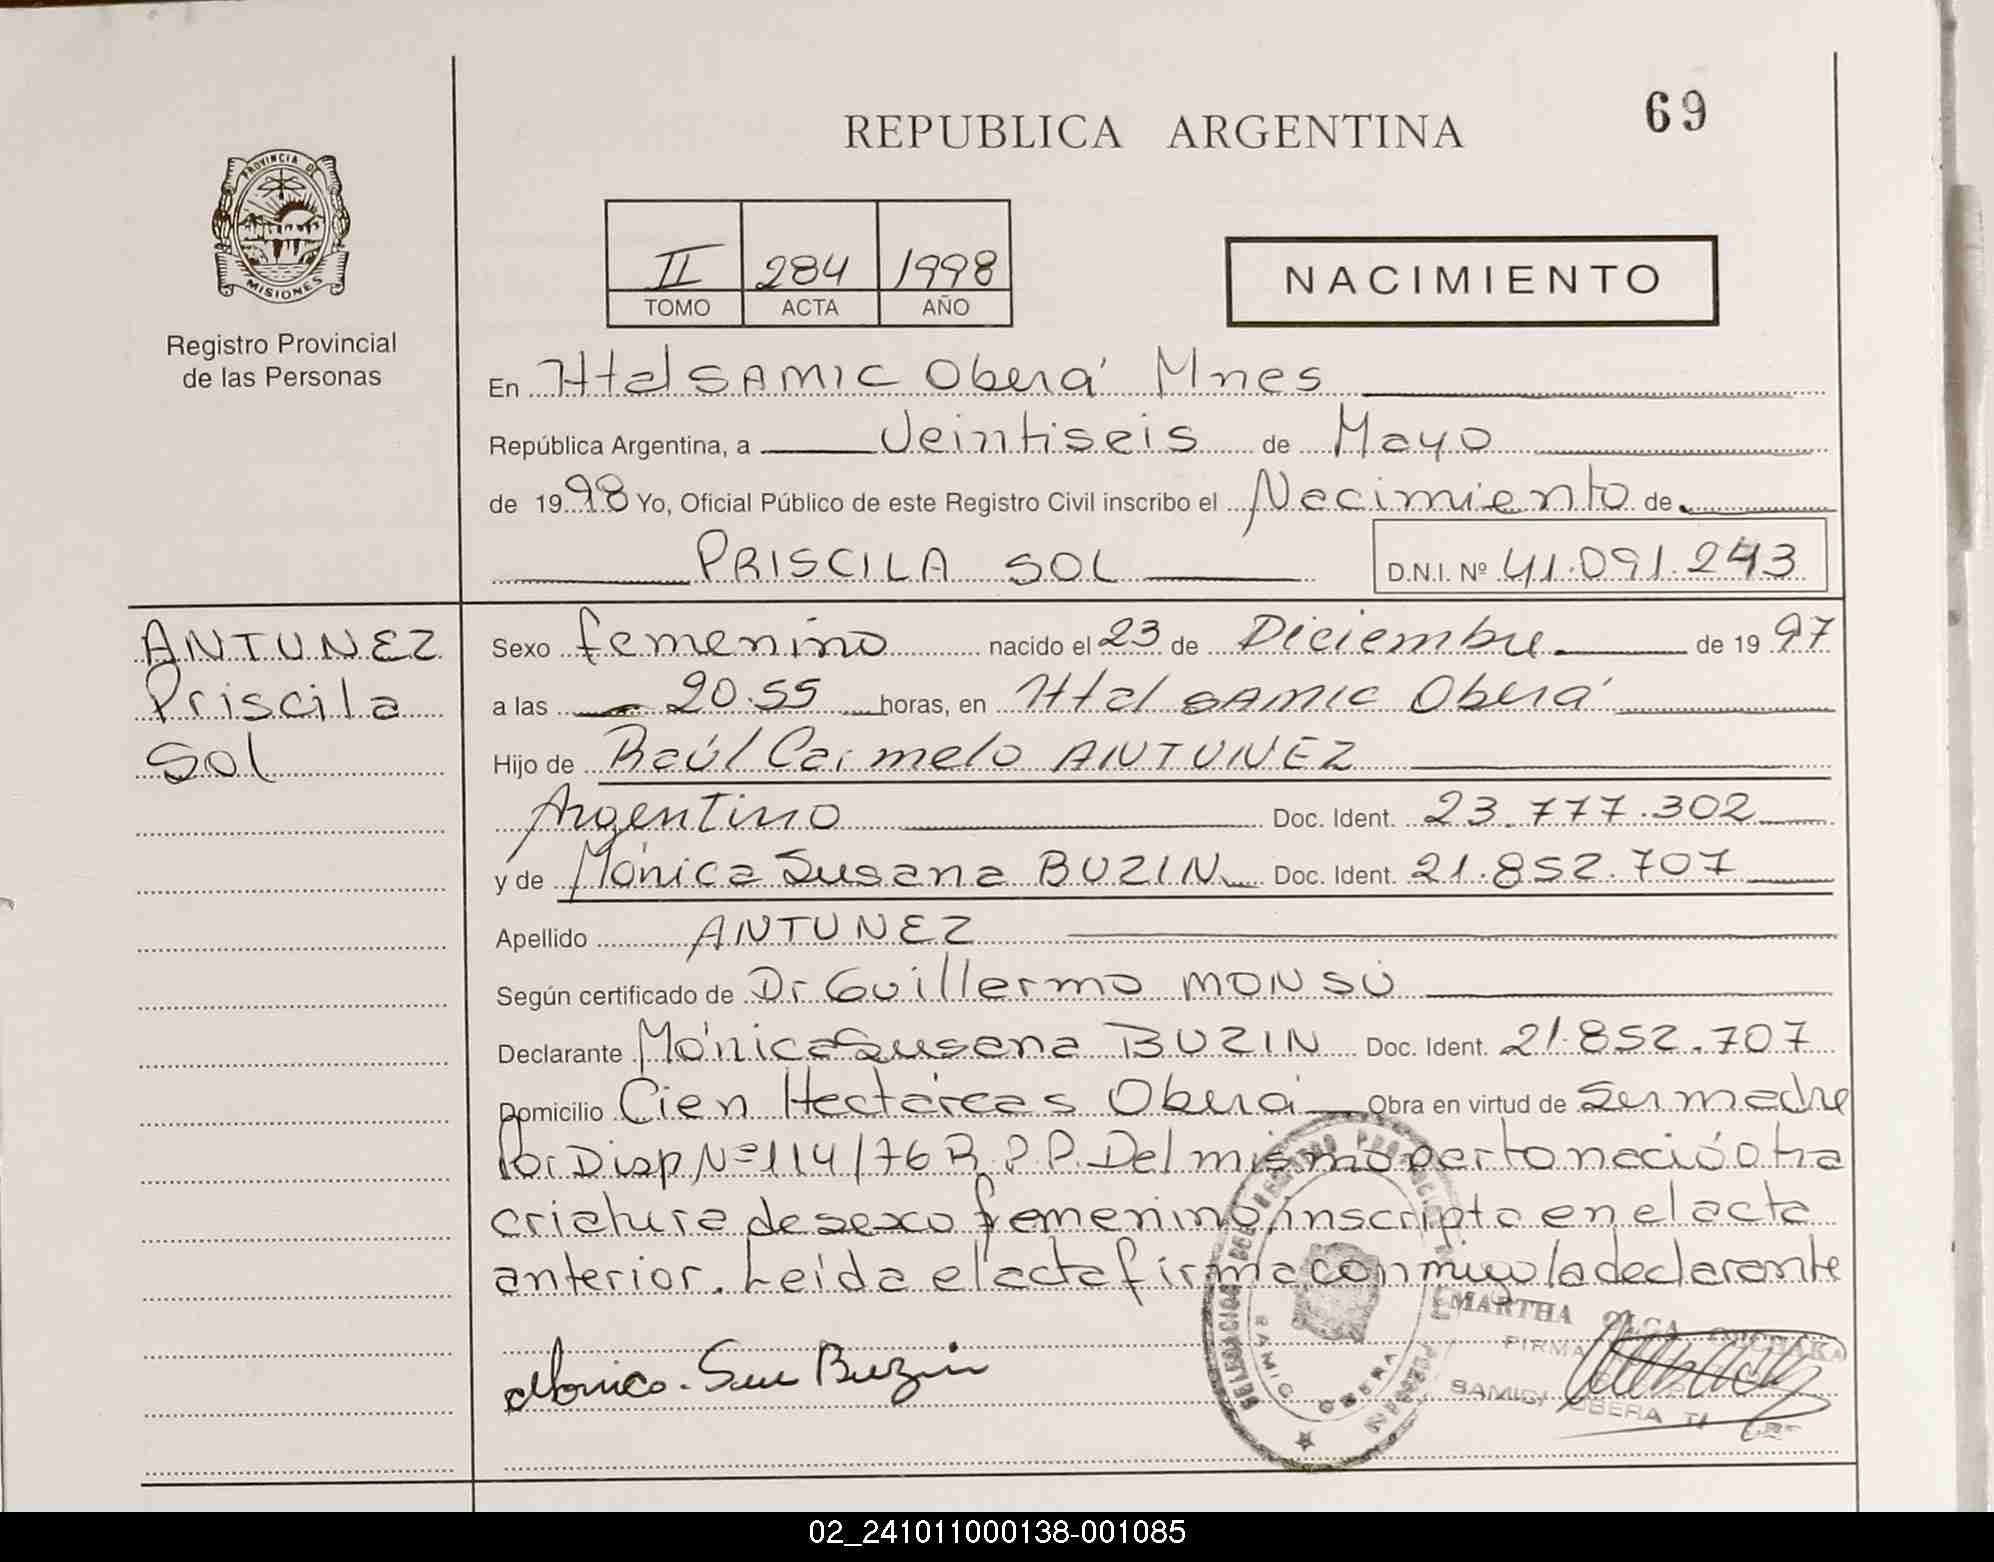 69
REPUBLICA ARGENTINA
PROVINCIA DE
MISIONES
Registro Provincial
de las Personas
II 284 1998
TOMO ACTA AÑO
NACIMIENTO
En Htal SAMIC Oberá Mnes
República Argentina, a Veintiseis de Mayo
de 1998 Yo, Oficial Público de este Registro Civil inscribo el Nacimiento de
PRISCILA SOL D.N.I. Nº 41.091.243
ANTUNEZ
Priscila
Sol
Sexo femenino nacido el 23 de Diciembre de 1997
a las 20.55 horas, en Htal SAMIC Oberá
Hijo de Raúl Carmelo ANTUNEZ
Argentino Doc. Ident. 23.777.302
y de Mónica Susana BUZIN Doc. Ident. 21.852.707
Apellido ANTUNEZ
Según certificado de Dr Guillermo MONSÚ
Declarante Mónica Susana BUZIN Doc. Ident. 21.852.707
Domicilio Cien Hectáreas Oberá Obra en virtud de Ser madre
Por Disp Nº 114/76 R.P.P. Del mismo parto nació otra
criatura de sexo femenino, inscripta en el acta
anterior. Leída el acta firma conmigo la declarante
Monica Sus Buzin
MARTHA OLGA
FIRMA
SAMIC OBERA
SAMIC OBERA
02_241011000138-001085